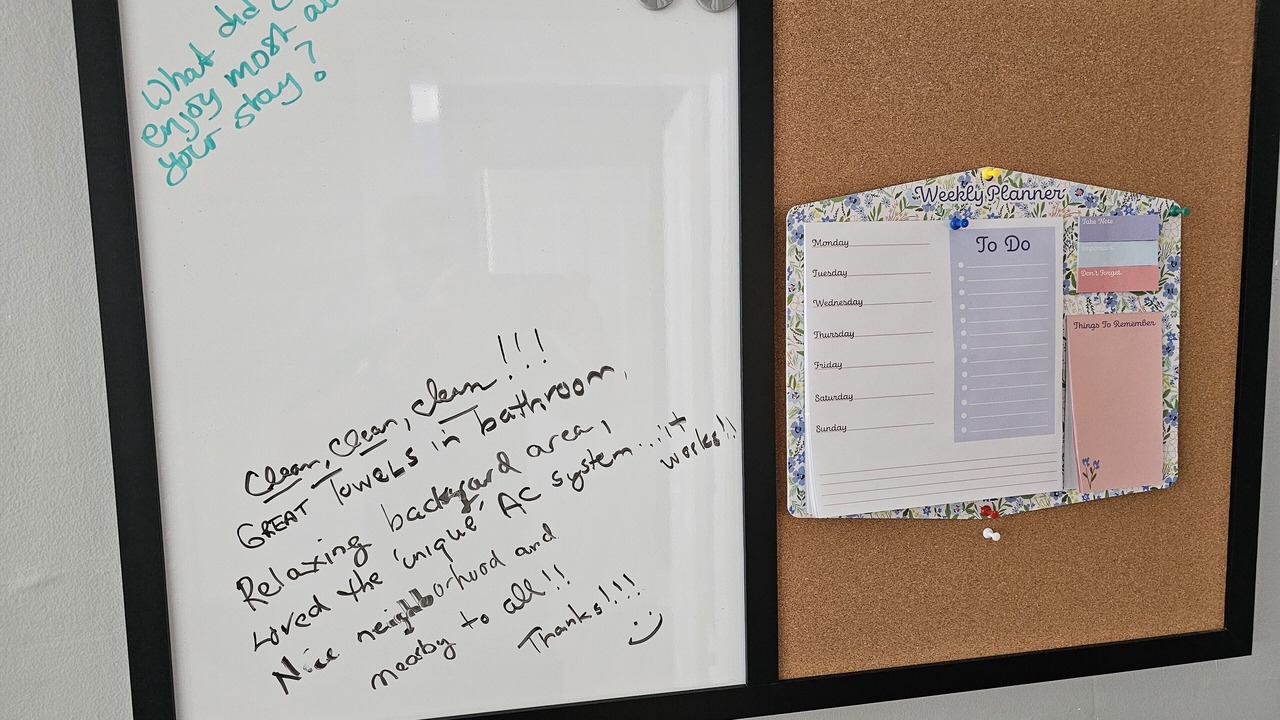 What did
enjoy most
your stay?
Clean, Clean, clean!!!
GREAT Towels in bathroom,
Relaxing backyard area,
Loved the 'unique' AC system...it works!!
Nice neighborhood and
nearby to all!!
Thanks!!!!
Weekly Planner
Monday
Tuesday
Wednesday
Thursday
Friday
Saturday
Sunday
To Do
Take Note
Don't Forget
Things To Remember